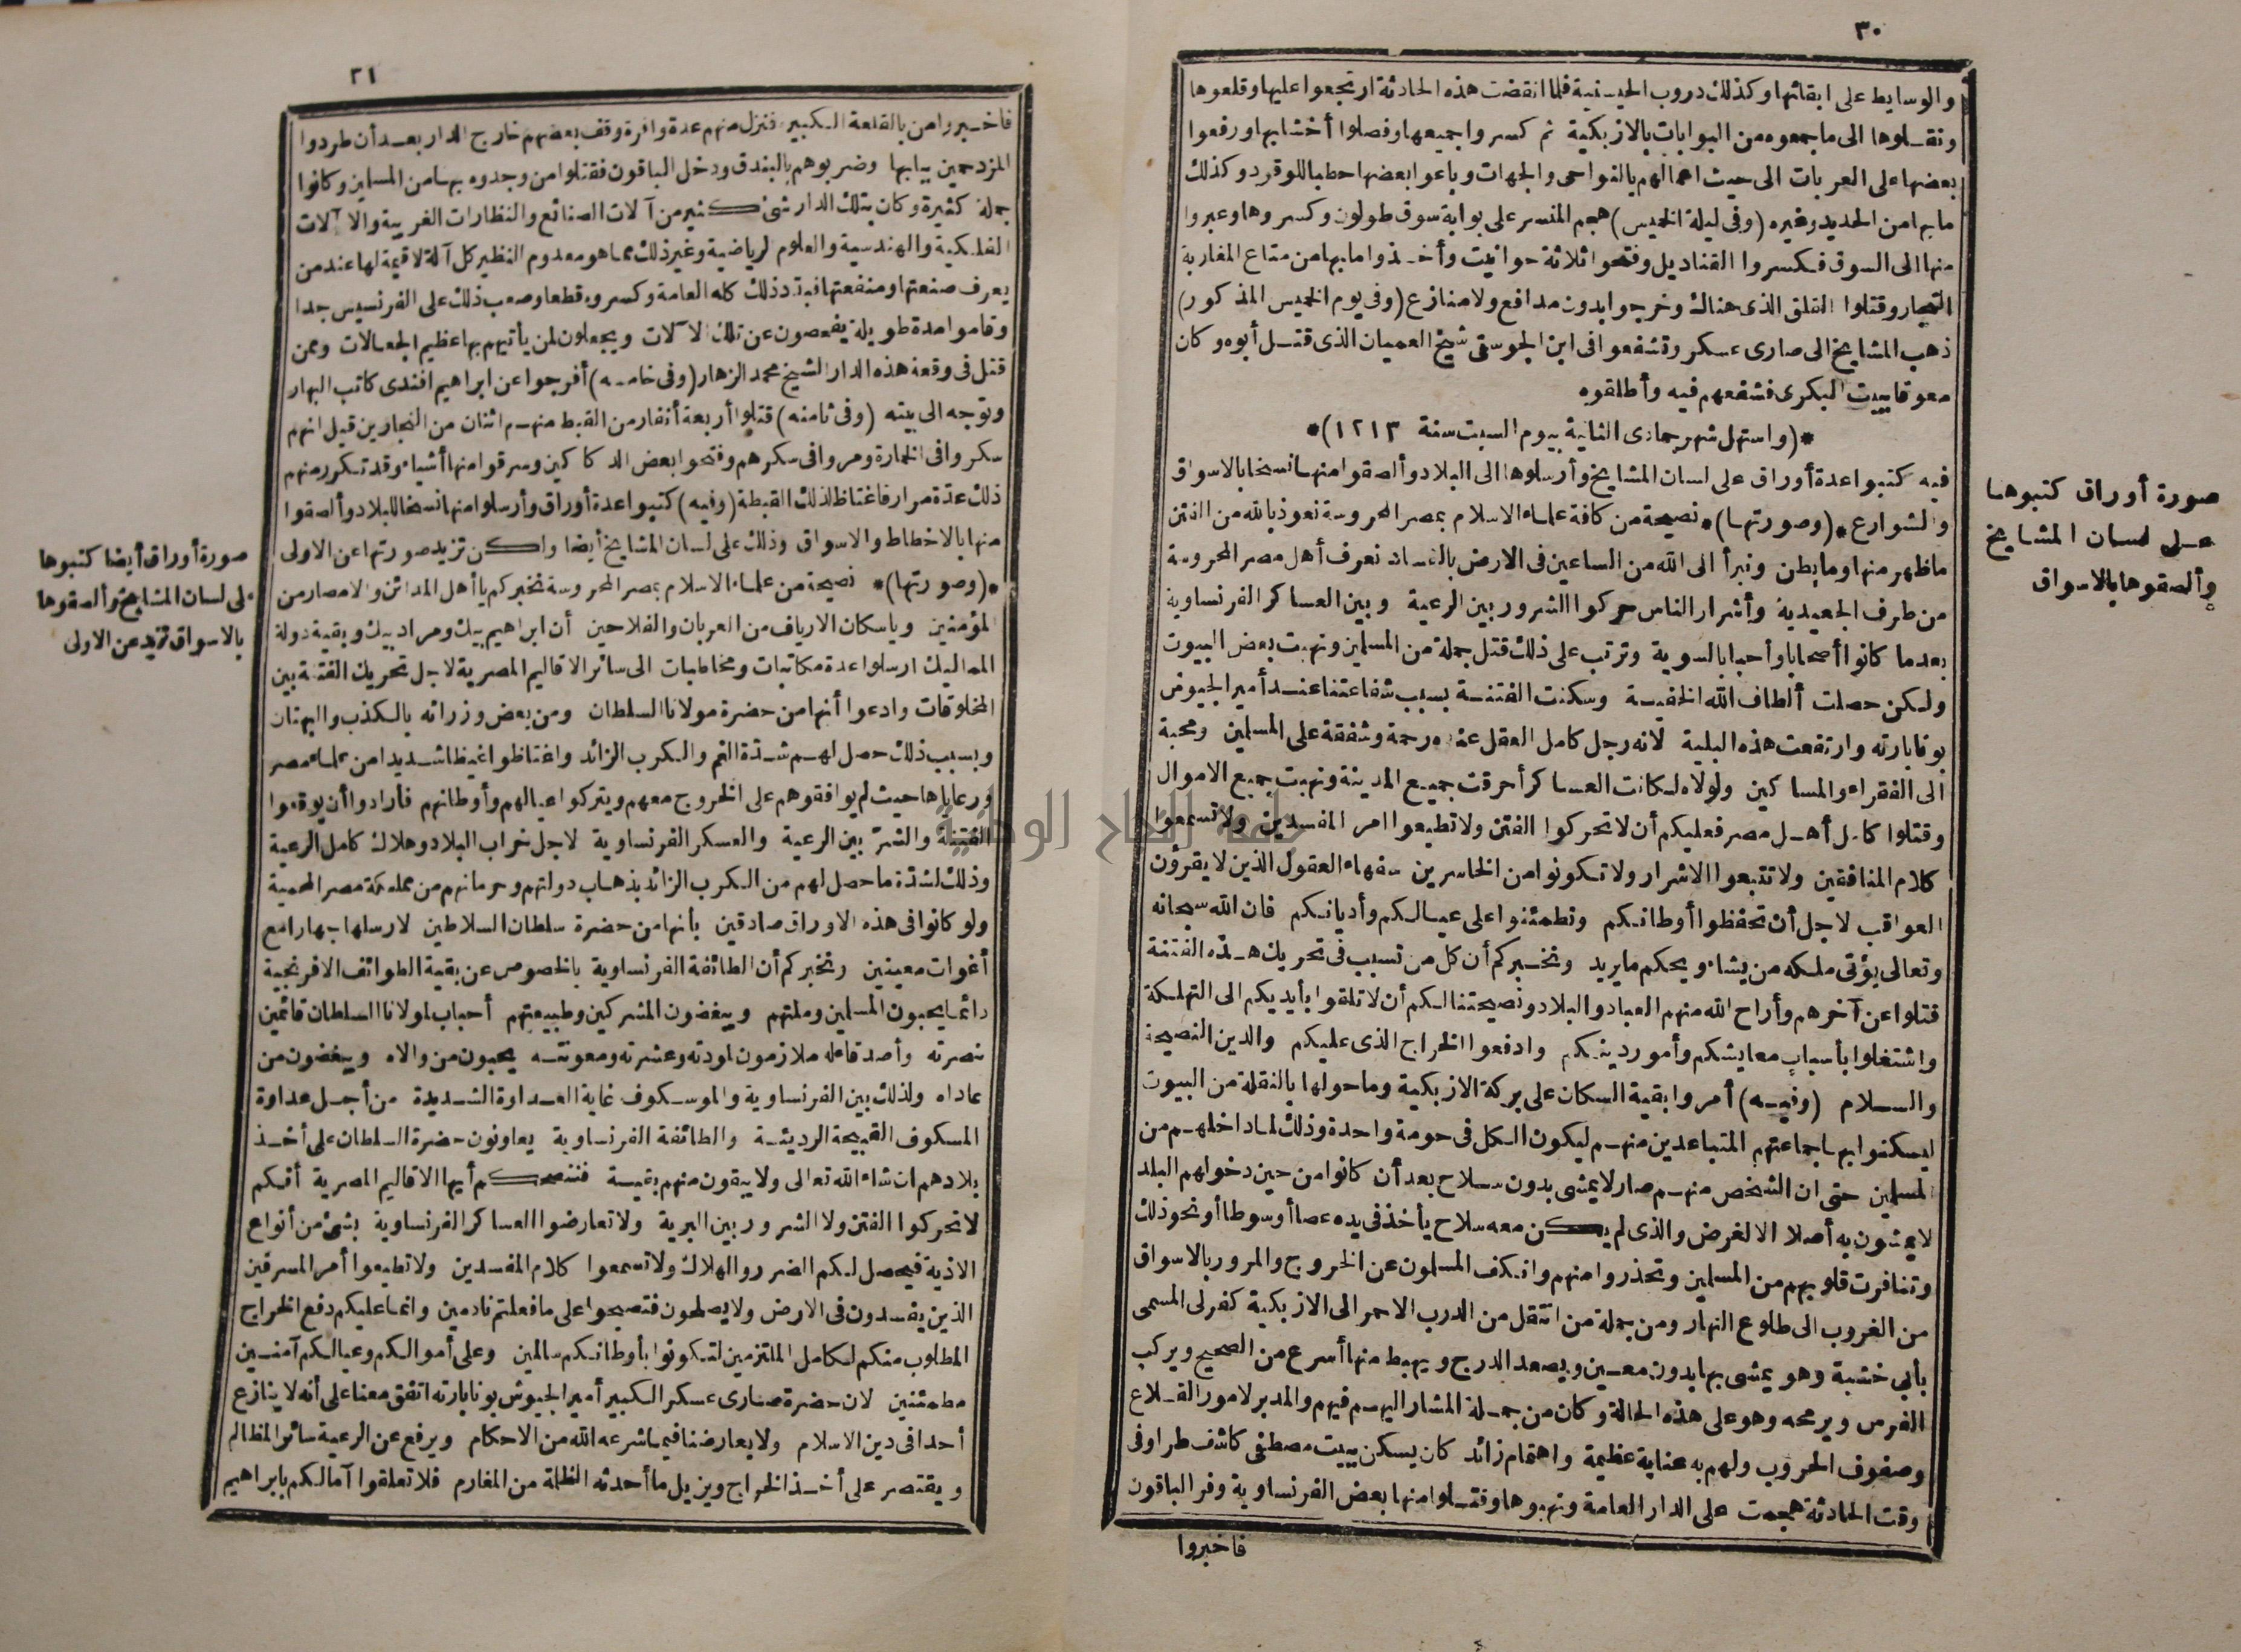 ٣٠
والوسايط على ابقائها وكذلك دروب الحسينية فلما انقضت هذه الحادثة ارتجعوا عليها وقلعوها
ونقلوها الى ما جمعوه من البوابات بالازبكية ثم كسروا جميعها وفصلوا أخشابها ورفعوا
بعضها على العربات الى حيث اعمالهم بالنواحى والجهات وباعوا بعضها حطبا للوقود وكذلك
ما بها من الحديد وغيره (وفى ليلة الخميس) هجم المنسر على بوابة سوق طولون وكسروها وعبروا
منها الى السوق فكسروا القناديل وفتحوا ثلاثة حوانيت وأخذوا ما بها من متاع المغاربة
التجار وقتلوا القلق الذى هناك وخرجوا بدون مدافع ولا منازع (وفى يوم الخميس المذكور)
ذهب المشايخ الى صارى عسكر وتشفعوا فى ابن الجوسقى شيخ العميان الذى قتل أبوه وكان
معوقا ببيت البكرى فشفعهم فيه وأطلقوه
*(واستهل شهر جمادى الثانية بيوم السبت سنة ١٢١٣)*
فيه كتبوا عدة أوراق على لسان المشايخ وأرسلوها الى البلاد وألصقوا منها نسخا بالاسواق
والشوارع *(وصورتها)* نصيحة من كافة علماء الاسلام بمصر المحروسة نعوذ بالله من الفتن
ما ظهر منها وما بطن ونبرأ الى الله من الساعين فى الارض بالفساد نعرف أهل مصر المحروسة
من طرف الجعيدية وأشرار الناس حركوا الشرور بين الرعية وبين العساكر الفرنساوية
بعد ما كانوا أصحابا وأحبابا بالسوية وترتب على ذلك قتل جملة من المسلمين ونهبت بعض البيوت
ولكن حصلت ألطاف الله الخفية وسكنت الفتنة بسبب شفاعتنا عند أمير الجيوش
بونابارته وارتفعت هذه البلية لانه رجل كامل العقل عنده رحمة وشفقة على المسلمين ومحبة
الى الفقراء والمساكين ولولاه لكانت العساكر أحرقت جميع المدينة ونهبت جميع الاموال
وقتلوا كامل أهل مصر فعليكم أن لا تحركوا الفتن ولا تطيعوا امر المفسدين ولا تسمعوا
كلام المنافقين ولا تتبعوا الاشرار ولا تكونوا من الخاسرين سفهاء العقول الذين لا يقرؤن
العواقب لاجل أن تحفظوا أوطانكم وتطمئنوا على عيالكم وأديانكم فان الله سبحانه
وتعالى يؤتى ملكه من يشاء ويحكم ما يريد ونخبركم أن كل من تسبب فى تحريك هذه الفتنة
قتلوا عن آخرهم وأراح الله منهم العباد والبلاد ونصيحتنا لكم أن لا تلقوا بأيديكم الى التهلكة
واشتغلوا بأسباب معايشكم وأمور دينكم وادفعوا الخراج الذى عليكم والدين النصيحة
والسلام (وفيه) أمروا بقية السكان على بركة الازبكية وما حولها بالنقلة من البيوت
ليسكنوا بها جماعتهم المتباعدين منهم ليكون الكل فى حومة واحدة وذلك لما داخلهم من
المسلمين حتى ان الشخص منهم صار لا يمشى بدون سلاح بعد أن كانوا من حين دخولهم البلد
لا يمشون به أصلا الا لغرض والذى لم يكن معه سلاح يأخذ فى يده عصا أو سوطا أو نحو ذلك
وتنافرت قلوبهم من المسلمين وتحذروا منهم وانكف المسلمون عن الخروج والمرور بالاسواق
من الغروب الى طلوع النهار ومن جملة من انتقل من الدرب الاحمر الى الازبكية كفرلى المسمى
بأبى خشبة وهو يمشى بها بدون معين ويصعد الدرج ويهبط منها أسرع من الصحيح ويركب
الفرس ويرمحه وهو على هذه الحالة وكان من جملة المشار اليهم فيهم والمدبر لامور القلاع
وصفوف الحروب ولهم به عناية عظيمة واهتمام زائد كان يسكن ببيت مصطفى كاشف طرا وفى
وقت الحادثة هجمت على الدار العامة ونهبوها وقتلوا منها بعض الفرنساوية وفر الباقون
فاخبروا
صورة أوراق كتبوها
على لسان المشايخ
وألصقوها بالاسواق
٣١
فاخبروا من بالقلعة الكبير فنزل منهم عدة وافرة وقف بعضهم خارج الدار بعد أن طردوا
المزدحمين ببابها وضربوهم بالبندق ودخل الباقون فقتلوا من وجدوه بها من المسلمين وكانوا
جملة كثيرة وكان بتلك الدار شئ كثير من آلات الصنائع والنظارات الغريبة والآلات
الفلكية والهندسية والعلوم الرياضية وغير ذلك مما هو معدوم النظير كل آلة لا قيمة لها عند من
يعرف صنعتها ومنفعتها فبدد ذلك كله العامة وكسروه قطعا وصعب ذلك على الفرنسيس جدا
وقاموا مدة طويلة يفحصون عن تلك الآلات ويجعلون لمن يأتيهم بها عظيم الجعالات وممن
قتل فى وقعة هذه الدار الشيخ محمد الزهار (وفى خامسه) أفرجوا عن ابراهيم افندى كاتب البهار
وتوجه الى بيته (وفى ثامنه) قتلوا أربعة أنفار من القبط منهم اثنان من النجارين قيل انهم
سكروا فى الخمارة ومروا فى سكرهم وفتحوا بعض الدكاكين وسرقوا منها أشياء وقد تكرر منهم
ذلك عدّة مرار فاغتاظ لذلك القبطة (وفيه) كتبوا عدة أوراق وأرسلوا منها نسخا للبلاد وألصقوا
منها بالاخطاط والاسواق وذلك على لسان المشايخ أيضا ولكن تزيد صورتها عن الاولى
*(وصورتها)* نصيحة من علماء الاسلام بمصر المحروسة نخبركم يا أهل المدائن والامصار من
المؤمنين ويا سكان الارياف من العربان والفلاحين أن ابراهيم بيك ومراد بيك وبقية دولة
المماليك ارسلوا عدة مكاتبات ومخاطبات الى سائر الاقاليم المصرية لاجل تحريك الفتنة بين
المخلوقات وادعوا أنها من حضرة مولانا السلطان ومن بعض وزرائه بالكذب والبهتان
وبسبب ذلك حصل لهم شدّة الغم والكرب الزائد واغتاظوا غيظا شديدا من علماء مصر
ورعاياها حيث لم يوافقوهم على الخروج معهم ويتركوا عيالهم وأوطانهم فأرادوا أن يوقعوا
الفتنة والشرّ بين الرعية والعسكر الفرنساوية لاجل خراب البلاد وهلاك كامل الرعية
وذلك لشدّة ما حصل لهم من الكرب الزائد بذهاب دولتهم وحرمانهم من مملكة مصر المحمية
ولو كانوا فى هذه الاوراق صادقين بأنها من حضرة سلطان السلاطين لارسلها جهارا مع
أغوات معينين ونخبركم أن الطائفة الفرنساوية بالخصوص عن بقية الطوائف الافرنجية
دائما يحبون المسلمين وملتهم ويبغضون المشركين وطبيعتهم أحباب لمولانا السلطان قائمين
بنصرته وأصدقاء له ملازمون لمودته وعشرته ومعونته يحبون من والاه ويبغضون من
عاداه ولذلك بين الفرنساوية والموسكوف غاية العداوة الشديدة من أجل عداوة
المسكوف القبيحة الرديئة والطائفة الفرنساوية يعاونون حضرة السلطان على أخذ
بلادهم ان شاء الله تعالى ولا يبقون منهم بقية فننصحكم أيها الاقاليم المصرية أنكم
لا تحركوا الفتن ولا الشرور بين البرية ولا تعارضوا العساكر الفرنساوية بشئ من أنواع
الاذية فيحصل لكم الضرر والهلاك ولا تسمعوا كلام المفسدين ولا تطيعوا أمر المسرفين
الذين يفسدون فى الارض ولا يصلحون فتصبحوا على ما فعلتم نادمين وانما عليكم دفع الخراج
المطلوب منكم لكامل الملتزمين لتكونوا بأوطانكم سالمين وعلى أموالكم وعيالكم آمنين
مطمئنين لان حضرة صارى عسكر الكبير أمير الجيوش بونابارته اتفق معنا على أنه لا ينازع
أحدا فى دين الاسلام ولا يعارضنا فيما شرعه الله من الاحكام ويرفع عن الرعية سائر المظالم
ويقتصر على أخذ الخراج ويزيل ما أحدثه الظلمة من المغارم فلا تعلقوا آمالكم بابراهيم
صورة أوراق أيضا كتبوها
على لسان المشايخ وألصقوها
بالاسواق تزيد عن الاولى
جامعة النجاح الوطنية